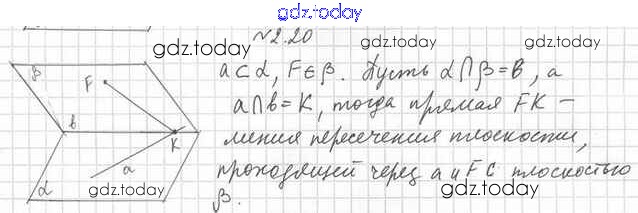 gdz.today
№2.20
gdz.today
gdz.today
gdz.today
a⊂α, F∈β. Пусть α∩β=B, а
a∩b=K, тогда прямая FK –
линия пересечения плоскости,
проходящей через a и FC плоскостью
β.
β
F
b
K
a
α
gdz.today
gdz.today